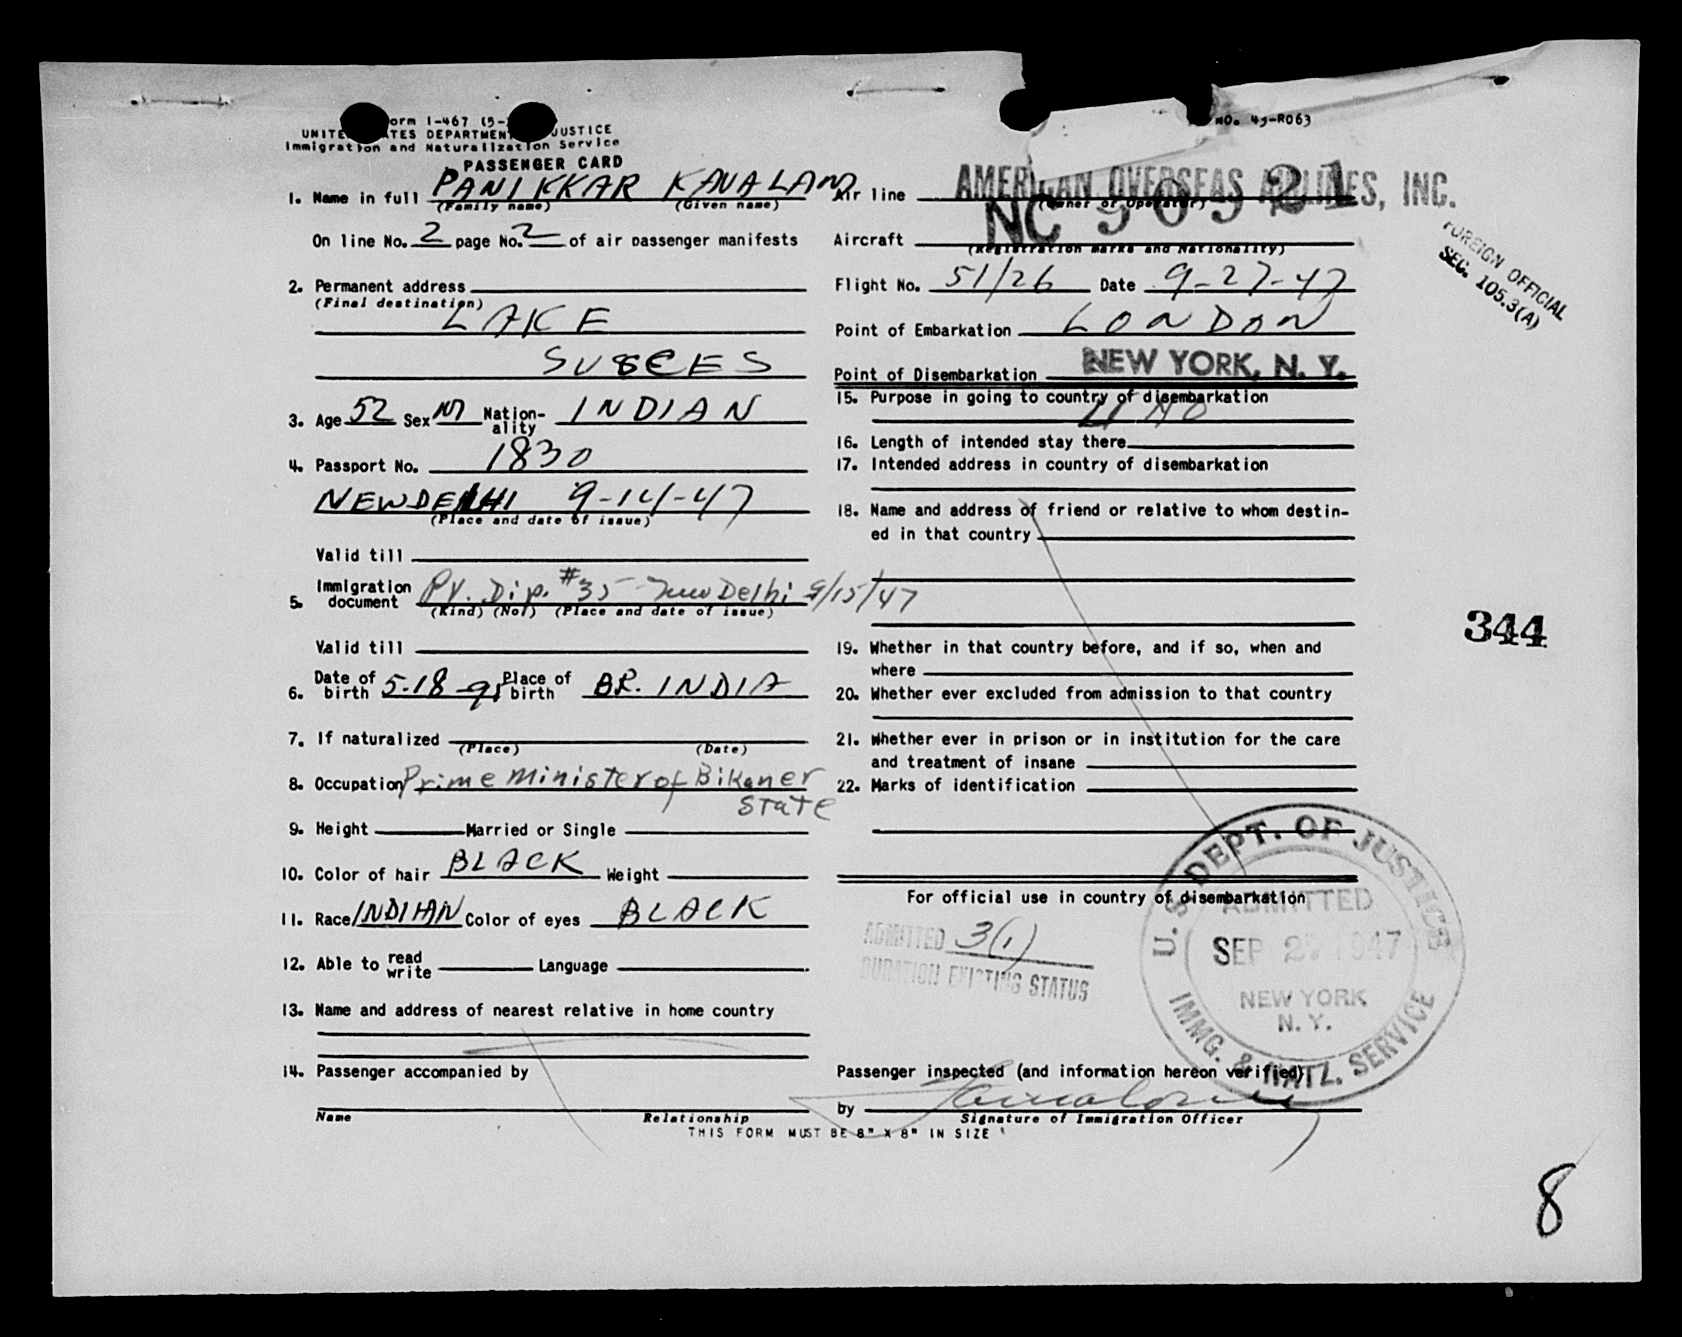 orm I-467 (5-
UNITE TES DEPARTMEN JUSTICE
Immigration and Naturalization Service
PASSENGER CARD
NO. 43-R063
1. Name in full PANIKKAR KAVALAM
(Family name) (Given name)
On line No. 2 page No. 2 of air passenger manifests
2. Permanent address
(Final destination)
LAKE
SUCCES
3. Age 52 Sex M Nation-ality INDIAN
4. Passport No. 1830
NEW DELHI 9-14-47
(Place and date of issue)
Valid till
5. Immigration document PV. Dip. #35 New Delhi 9/15/47
(Kind) (No.) (Place and date of issue)
Valid till
6. Date of birth 5-18-95 Place of birth BR. INDIA
7. If naturalized
(Place) (Date)
8. Occupation Prime Minister of Bikaner
State
9. Height Married or Single
10. Color of hair BLACK Weight
11. Race INDIAN Color of eyes BLACK
12. Able to read write Language
13. Name and address of nearest relative in home country
14. Passenger accompanied by
Name Relationship
THIS FORM MUST BE 8" X 8" IN SIZE
Air line AMERICAN OVERSEAS AIRLINES, INC.
(Owner or Operator)
Aircraft NC 90921
(Registration marks and Nationality)
Flight No. 51/26 Date 9-27-47
Point of Embarkation LONDON
Point of Disembarkation NEW YORK, N. Y.
15. Purpose in going to country of disembarkation
UNO
16. Length of intended stay there
17. Intended address in country of disembarkation
18. Name and address of friend or relative to whom destin-
ed in that country
19. Whether in that country before, and if so, when and
where
20. Whether ever excluded from admission to that country
21. Whether ever in prison or in institution for the care
and treatment of insane
22. Marks of identification
For official use in country of disembarkation
ADMITTED 3(1)
DURATION EXISTING STATUS
U. S. DEPT. OF JUSTICE
ADMITTED
SEP 27 1947
NEW YORK
N. Y.
IMMG. & NATZ. SERVICE
Passenger inspected (and information hereon verified)
by
Signature of Immigration Officer
FOREIGN OFFICIAL
SEC. 105.3(A)
344
8